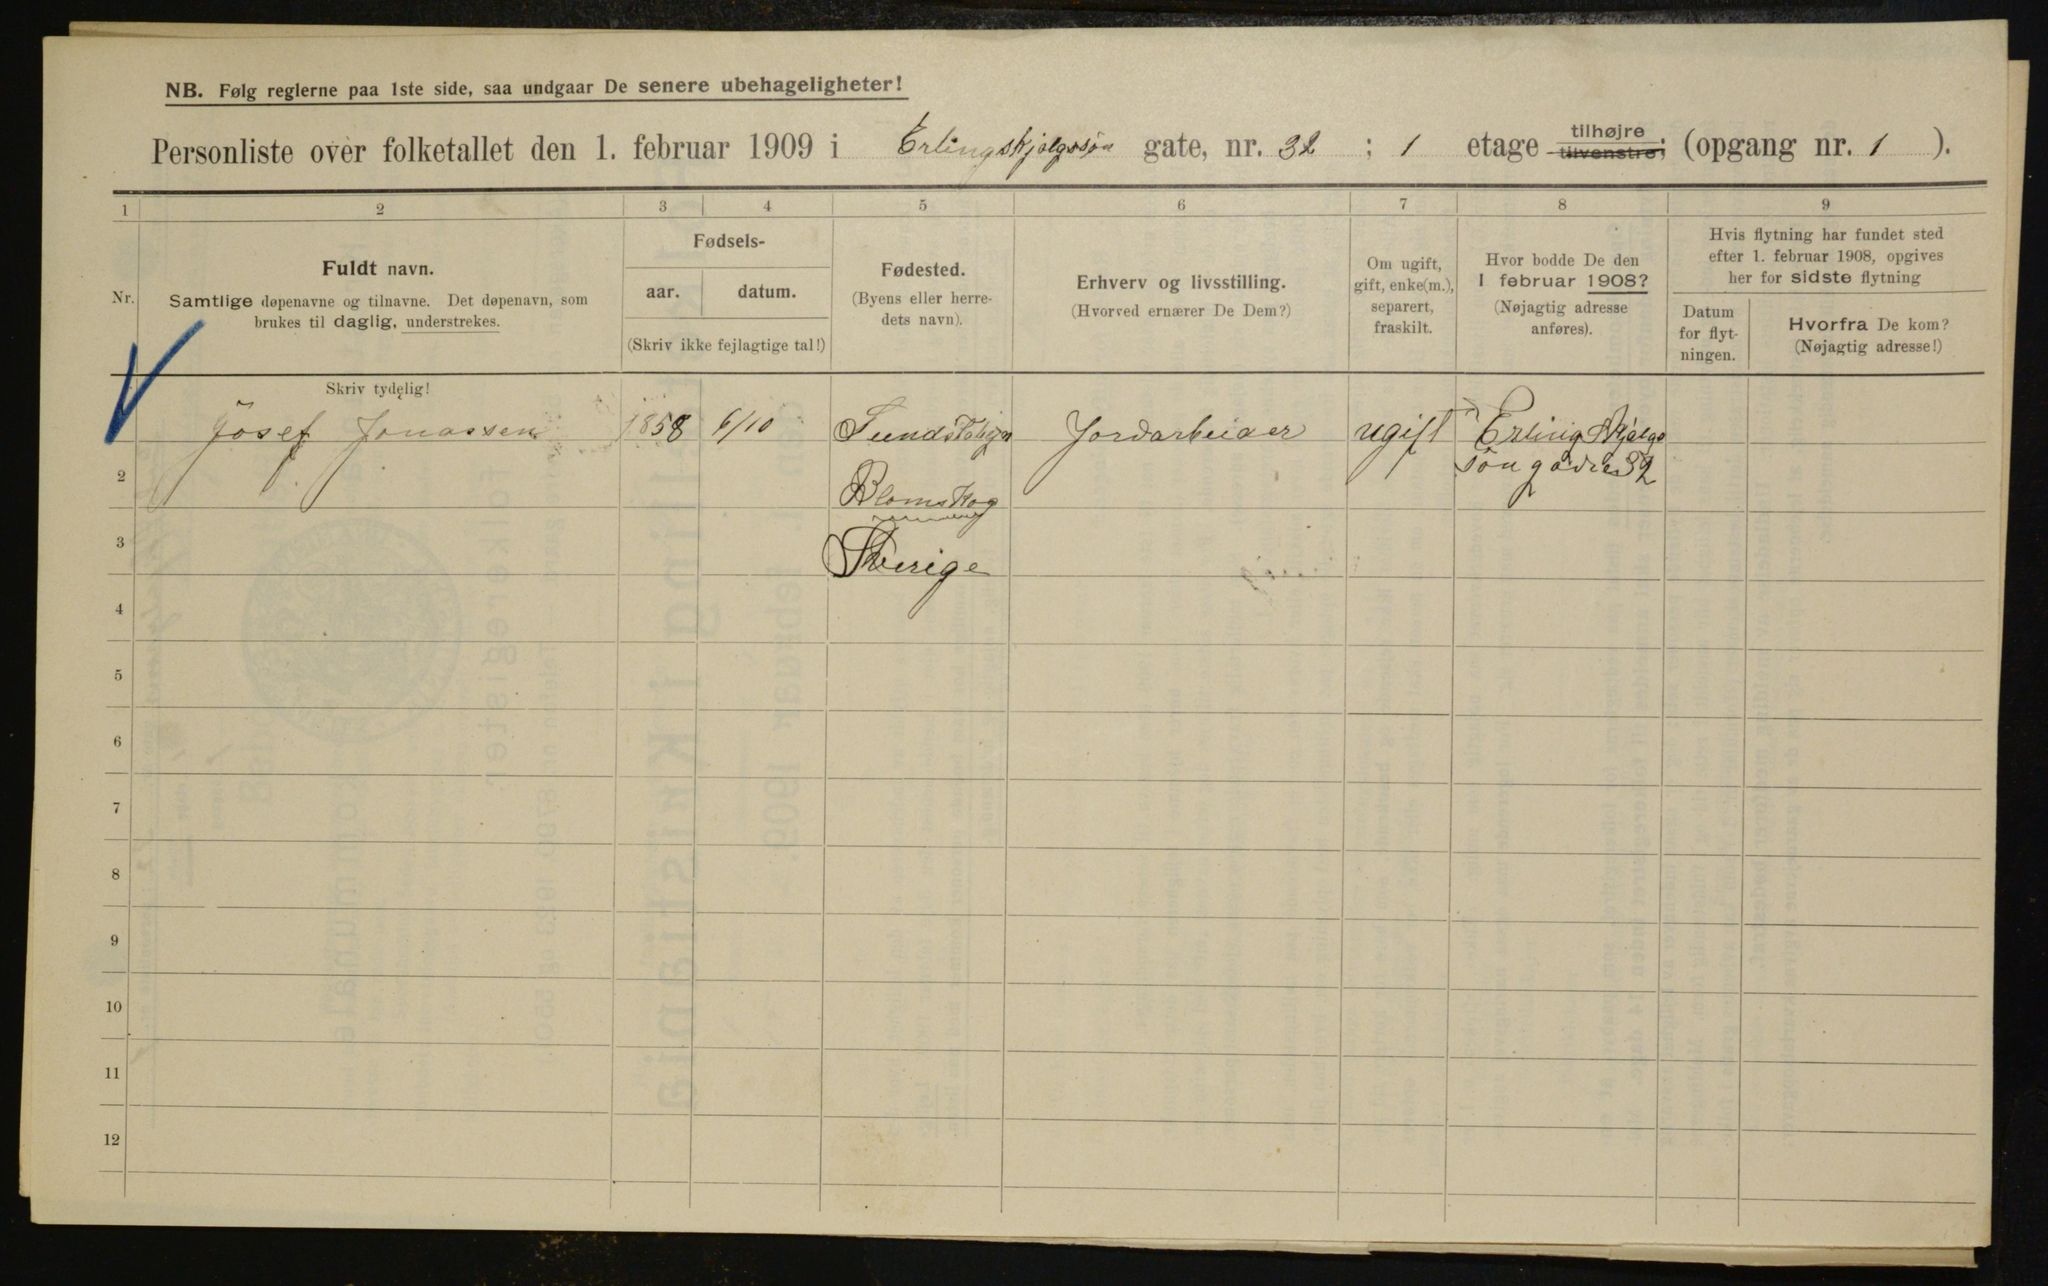 NB. Følg reglerne paa 1ste side, saa undgaar De senere ubehageligheter!
Personliste over folketallet den 1. februar 1909 i Erlingskjalgssøn gate, nr. 32 ; 1 etage tilhøjre tilvenstre; (opgang nr. 1 ).
1 2 3 4 5 6 7 8 9
Nr.
Fuldt navn.
Samtlige døpenavne og tilnavne. Det døpenavn, som
brukes til daglig, understrekes.
Fødsels-
aar. datum.
(Skriv ikke fejlagtige tal!)
Fødested.
(Byens eller herre-
dets navn).
Erhverv og livsstilling.
(Hvorved ernærer De Dem?)
Om ugift,
gift, enke(m.),
separert,
fraskilt.
Hvor bodde De den
1 februar 1908?
(Nøjagtig adresse
anføres).
Hvis flytning har fundet sted
efter 1. februar 1908, opgives
her for sidste flytning
Datum
for flyt-
ningen.
Hvorfra De kom?
(Nøjagtig adresse!)
Skriv tydelig!
Josef Jonassen 1858 6/10 Jordarbeider ugift Erling Skjalgs
søn gade 32
2 Blomskog
3 Sverige
4
5
6
7
8
9
10
11
12